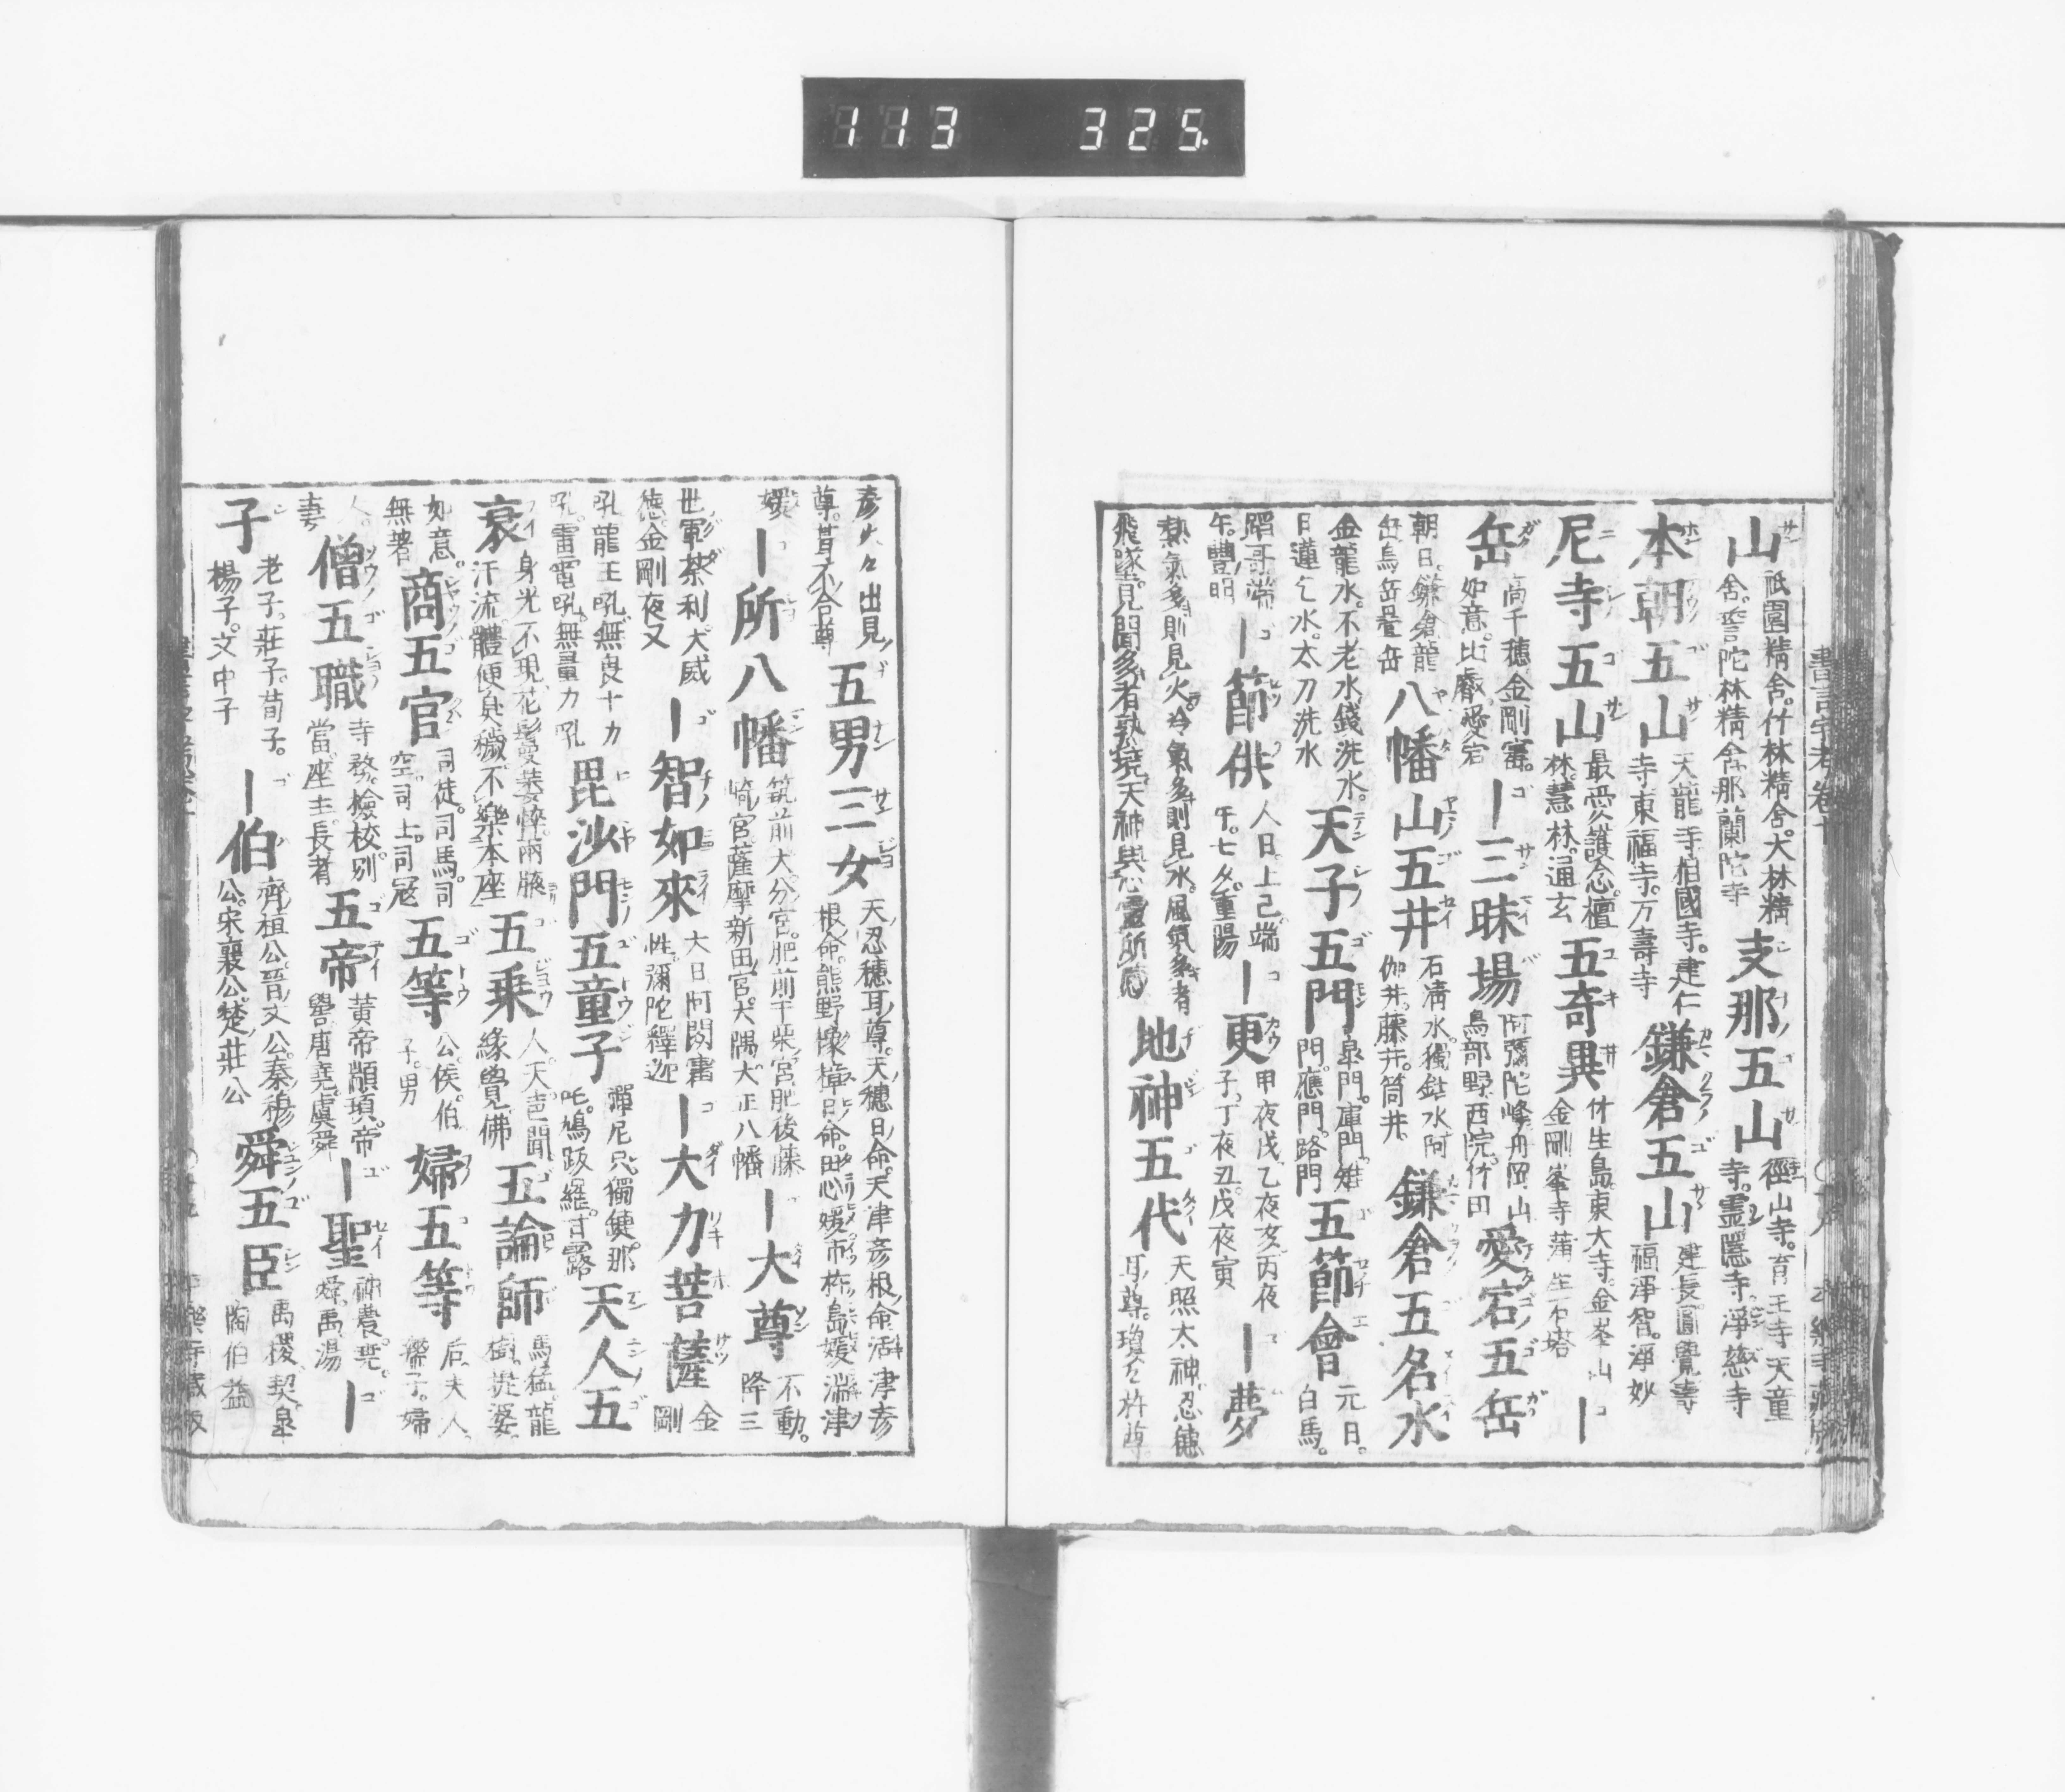 113 325.
山 祇園精舍。竹林精舍。大林精
舍。誓陀林精舍。那蘭陀寺
支那五山 徑山寺。育王寺天童
寺。靈隱寺。淨慈寺
本朝五山 天龍寺。相國寺。建仁
寺東福寺。万壽寺
鎌倉五山 建長圓覺壽
福淨智。淨妙
尼寺五山 最愛護念。檀
林。慧林。通玄
五奇異 竹生島東大寺。金峯山
金剛峯寺蒲生石塔
｜岳 高千穗金剛寶。
如意。比叡愛宕
｜三昧場 阿彌陀峰舟岡山
鳥部野西院。竹田
愛宕五岳
朝日。鎌倉龍
岳烏岳疊岳
八幡山五井 石淸水。獨鈷水阿
伽井。藤井。筒井
鎌倉五名水
金龍水。不老水錢洗水。
日蓮乞水。太刀洗水
天子五門 皐門。庫門。雉
門。應門。路門
五節會 元日。
白馬。
踏哥端
午。豐明
｜節供 人日。上巳端
午。七夕。重陽
｜更 甲夜戌乙夜亥丙夜
子。丁夜丑。戊夜寅
｜夢
熱氣多則見火。冷氣多則見水。風氣多者
飛墜。見聞多者熟境。天神與心靈所感
地神五代 天照太神。忍穗
耳尊。瓊々杵尊。
彥火々出見
尊。葺不合尊
五男三女 天忍穗耳尊。天穗日命。天津彥根命活津彥
根命。熊野櫲樟日命。田心媛市杵島媛湍津
媛
｜所八幡 筑前大分宮。肥前千栗宮肥後藤
崎宮薩摩新田宮。大隅大正八幡
｜大尊 不動。
降三
世軍荼利。大威
德。金剛夜叉
｜智如來 大日阿閦寶
性。彌陀釋迦
｜大力菩薩 金
剛
吼龍王吼。無畏十力
吼。雷電吼。無量力吼
毘沙門五童子 禪尼只獨健那
吒。鳩跋羅。甘露
天人五
衰 身光不現花鬘萎悴。兩腋
汗流。體便臭穢。不樂本座
五乗 人。天。声聞
緣覺。佛
五論師 馬猛。龍
樹。提婆。
如意。
無著
商五官 司徒。司馬。司
空。司士。司寇
五等 公。侯。伯
子。男
婦五等 后。夫人。
孺子。婦
人。
妻
僧五職 寺務。檢校。別
當。座主。長者
五帝 黃帝顓頊。帝
嚳唐堯。虞舜
｜聖 神農。堯。
舜。禹湯
｜
子 老子。莊子。荀子。
楊子。文中子
｜伯 齊桓公。晉文公。秦穆
公。宋襄公楚莊公
舜五臣 禹稷。契。皐
陶伯益